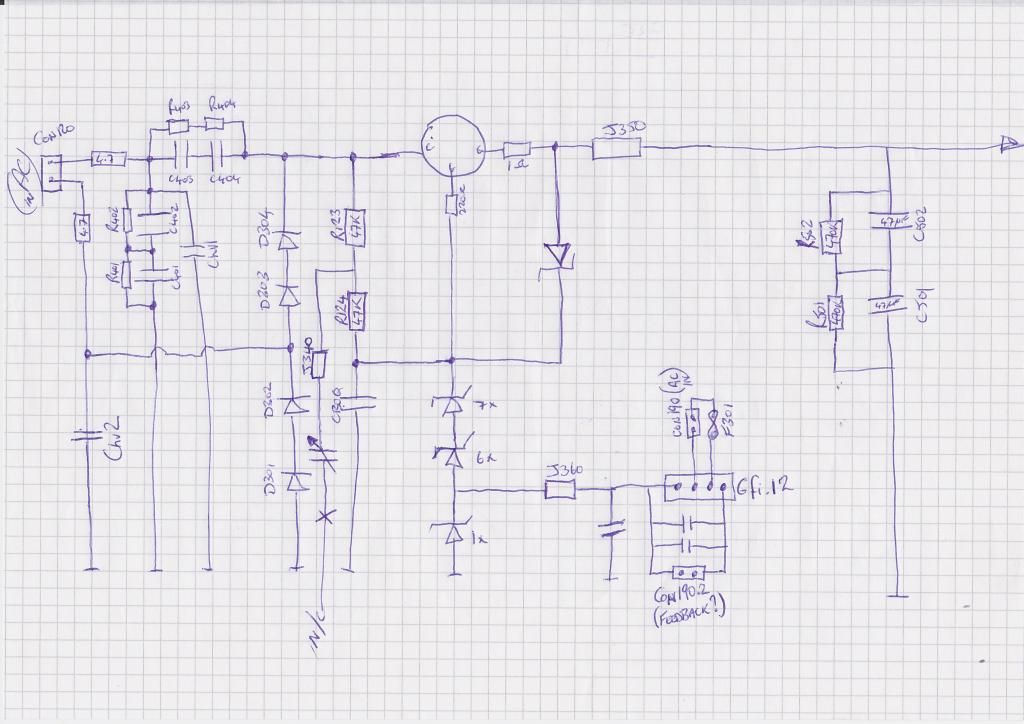 CON20
(AC) in
1
2
4.7
4.7
R403
R404
C403
C404
R402
C402
R401
C401
Chv1
Chv2
D304
D303
D302
D301
R123
47K
R124
47K
J340
C300
N/C
220E
1Ω
J350
7x
6x
1x
J360
CON190 (AC) IN
F301
Gfi.12
CON190.2
(FEEDBACK?)
R502
470K
47µF
C502
R501
470K
47µF
C501